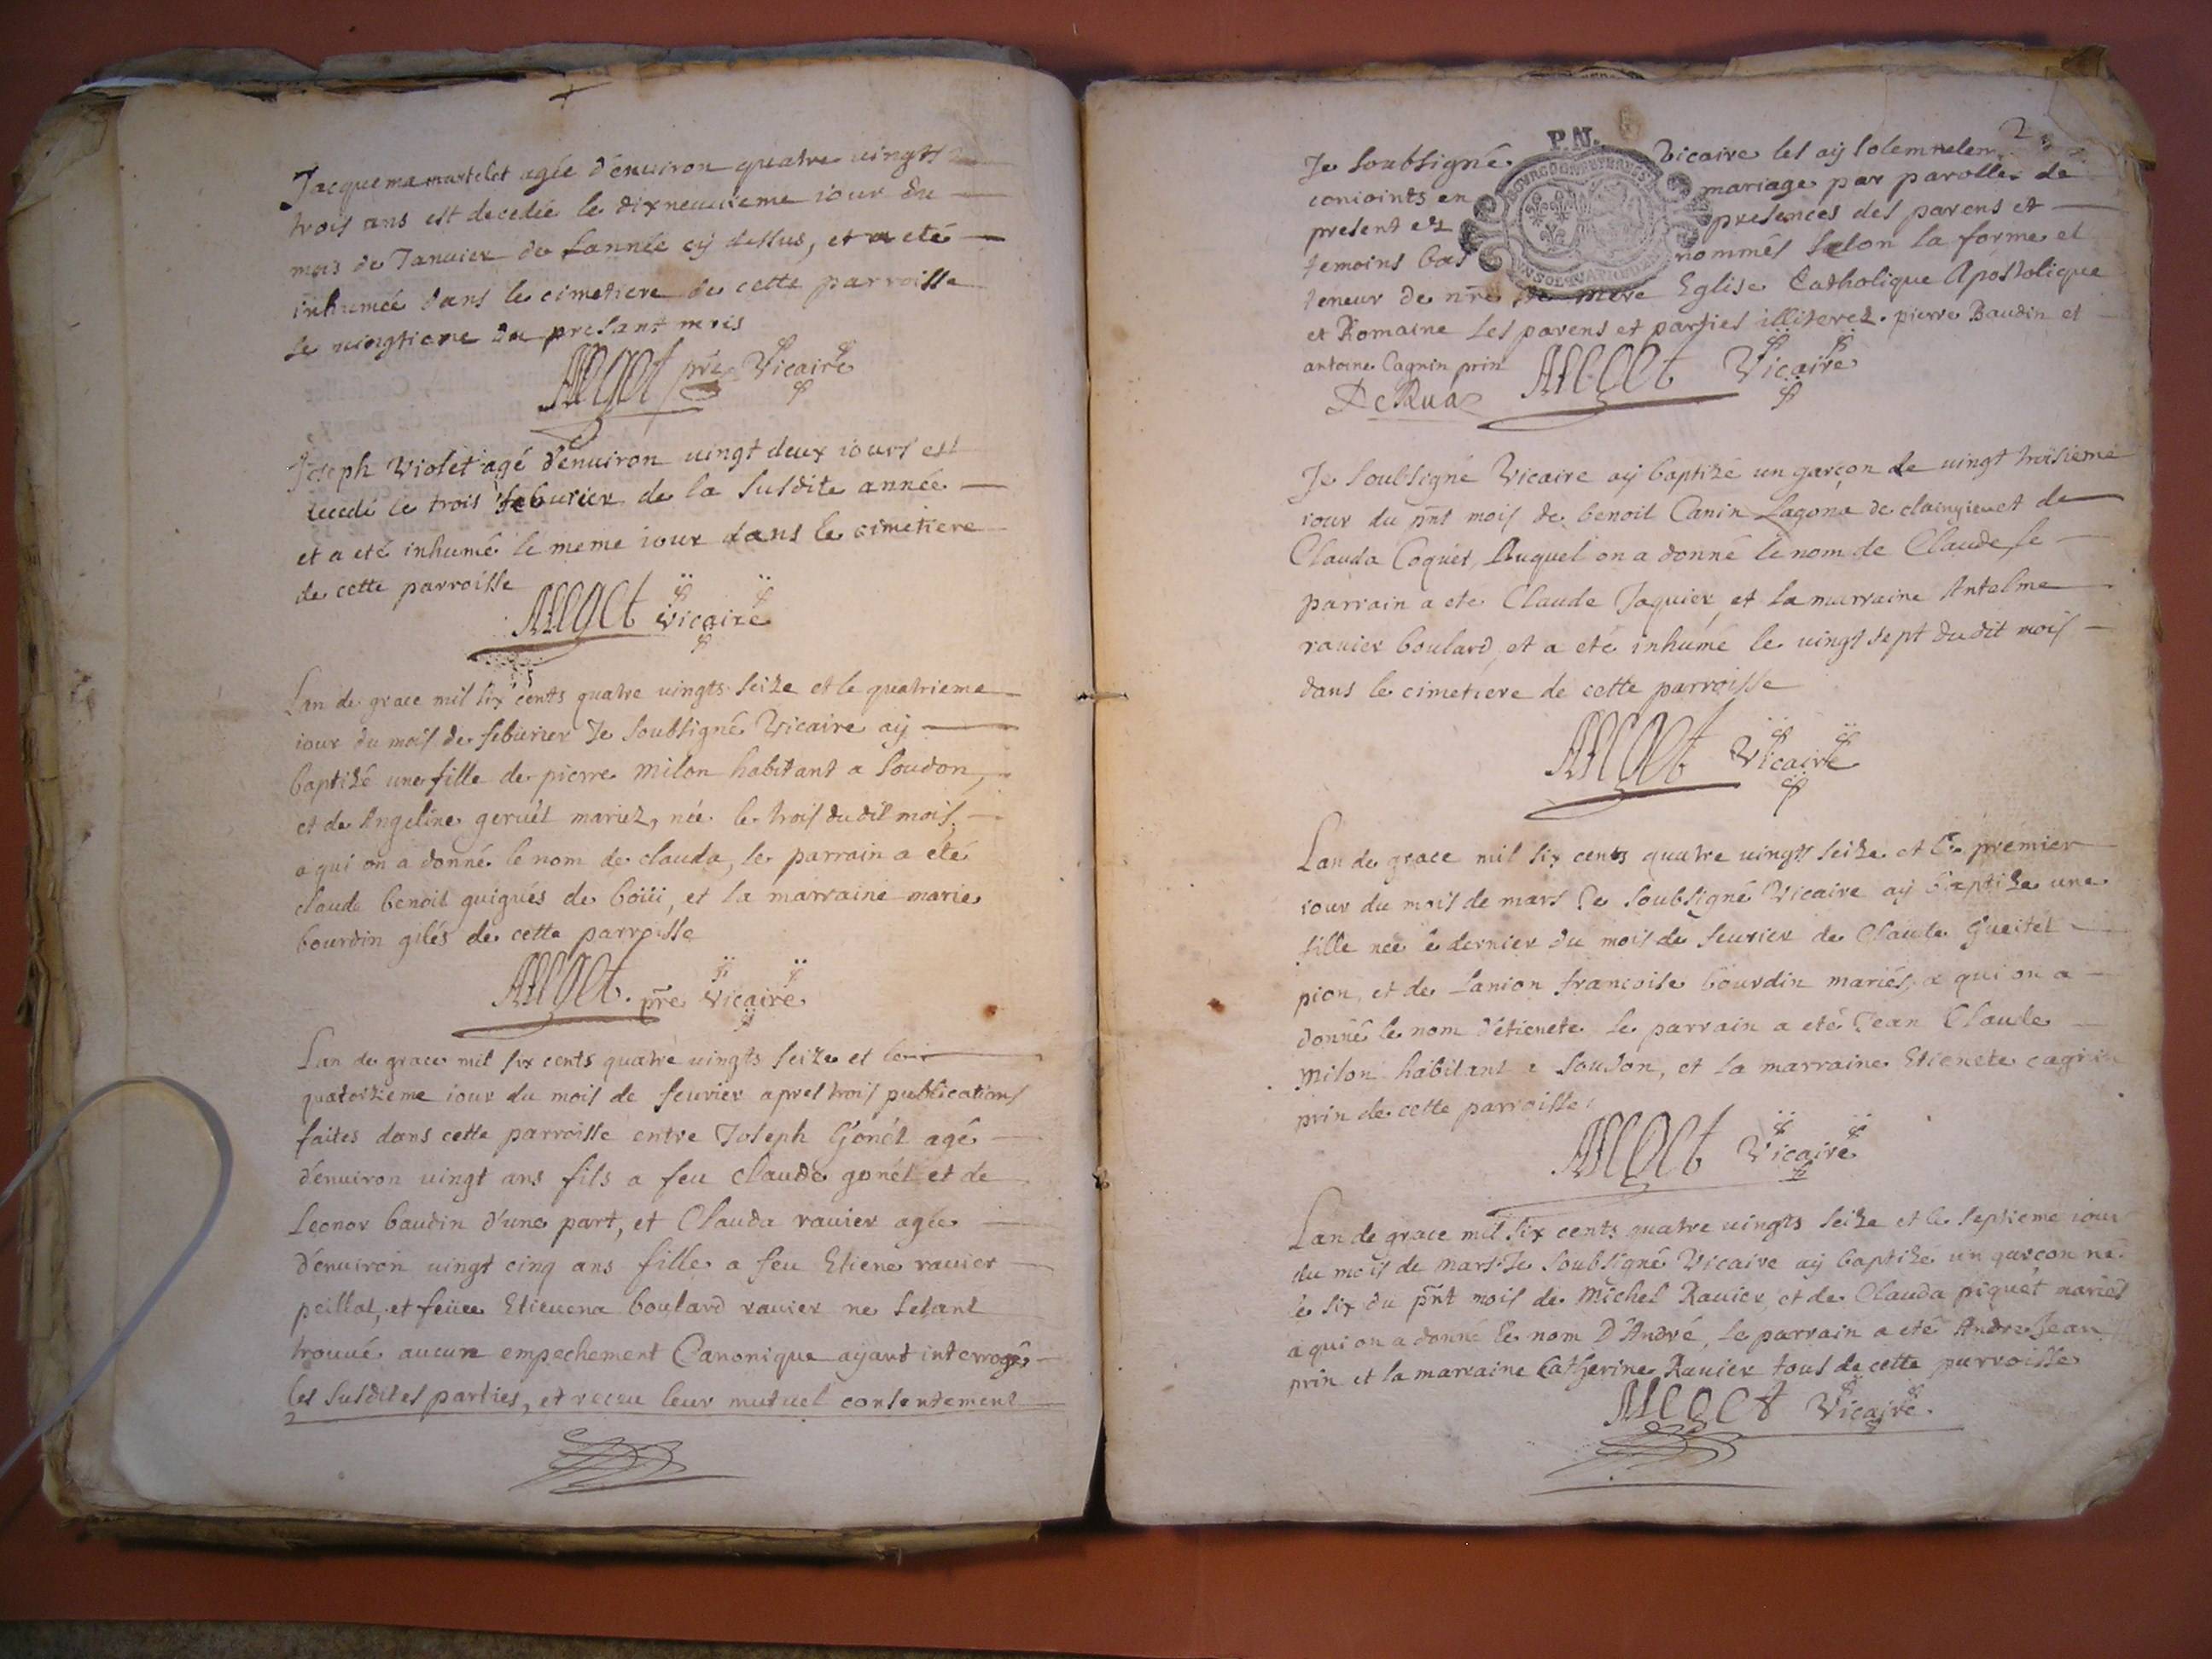 Jacquema martelet agée d'enuiron quatre uingts
trois ans est decedée le dixneuuieme iour du
mois de Januier de L'année cy dessus, et a eté
inhumée dans le cimetiere de cette parroisse
le uingtieme du presant mois
pre Vicaire
Joseph Violet agé d'enuiron uingt deux iours est
decedé le trois feburier de la susdite année
et a eté inhumé le meme iour dans le cimetiere
de cette parroisse
Vicaire
Lan de grace mil six cents quatre uingts seize et le quatrieme
iour du mois de feburier Je soubsigné Vicaire aÿ
baptizé une fille de pierre Milon habitant a soudon,
et de Angeline geruét mariez, née le trois du dit mois,
a qui on a donné le nom de clauda, le parrain a eté
claude benoit guigués de boüi, et la marraine marie
bourdin gilés de cette parroisse
pre Vicaire
Lan de grace mil six cents quatre uingts seize et le
quatorzieme iour du mois de feurier apres trois publications
faites dans cette parroisse entre Joseph Gonét agé
d'enuiron uingt ans fils a feu claude gonét et de
Leonor baudin d'une part, et Clauda rauier agée
d'enuiron uingt cinq ans fille a feu Etiene rauier
peillat, et feüe Etieuena boulard rauier ne setant
trouué aucun empechement Canonique ayant interrogés
les susdites parties, et receu leur mutuel consentement
2
P.N.
Je soubsigné Vicaire les aÿ solemnelem
conioints en mariage par parolles de
present ez presences des parens et
temoins bas nommés selon la forme et
teneur de nre ste mere Eglise Catholique Apostolique
et Romaine les parens et parties illiterez. pierre Baudin et
antoine Cagnin prin Vicaire
DeRua
Je soubsigné Vicaire aÿ baptizé un garçon le uingt troisieme
iour du pnt mois de benoit Canin Lagona de et de
Clauda Coquet, Auquel on a donné le nom de Claude le
parrain a eté Claude Jaquier et la marraine Antelme
rauier boulard, et a eté inhumé le uingt sept du dit mois
dans le cimetiere de cette parroisse
Vicaire
Lan de grace mil six cents quatre uingts seize et le premier
iour du mois de mars Je soubsigné Vicaire aÿ baptize une
fille née le dernier du mois de feurier de Claude
pion, et de Lanion francoise bourdin mariés, a qui on a
donné le nom d'étienete le parrain a eté Jean Claude
Milon habitant a soudon, et la marraine Etienete cagnin
prin de cette parroisse.
Vicaire
Lan de grace mil six cents quatre uingts seize et le septieme iour
du mois de mars Je soubsigné Vicaire aÿ baptize un garcon né
le six du pnt mois de Michel Rauier et de Clauda piquét mariés
a qui on a donné le nom D'André, le parrain a eté Andre Jean
prin et la marraine Catherine Rauier tous de cette parroisse
Vicaire